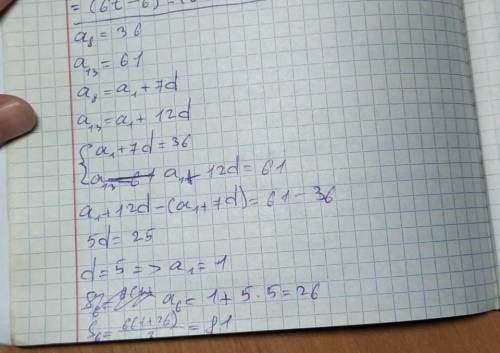 = (6t - 6) = (6
a₈ = 36
a₁₃ = 61
a₈ = a₁ + 7d
a₁₃ = a₁ + 12d
{ a₁ + 7d = 36
a₁ + 12d = 61
a₁ + 12d - (a₁ + 7d) = 61 - 36
5d = 25
d = 5 => a₁ = 1
a₆ = 1 + 5 · 5 = 26
S₆ = 6(1+26)/2 = 81